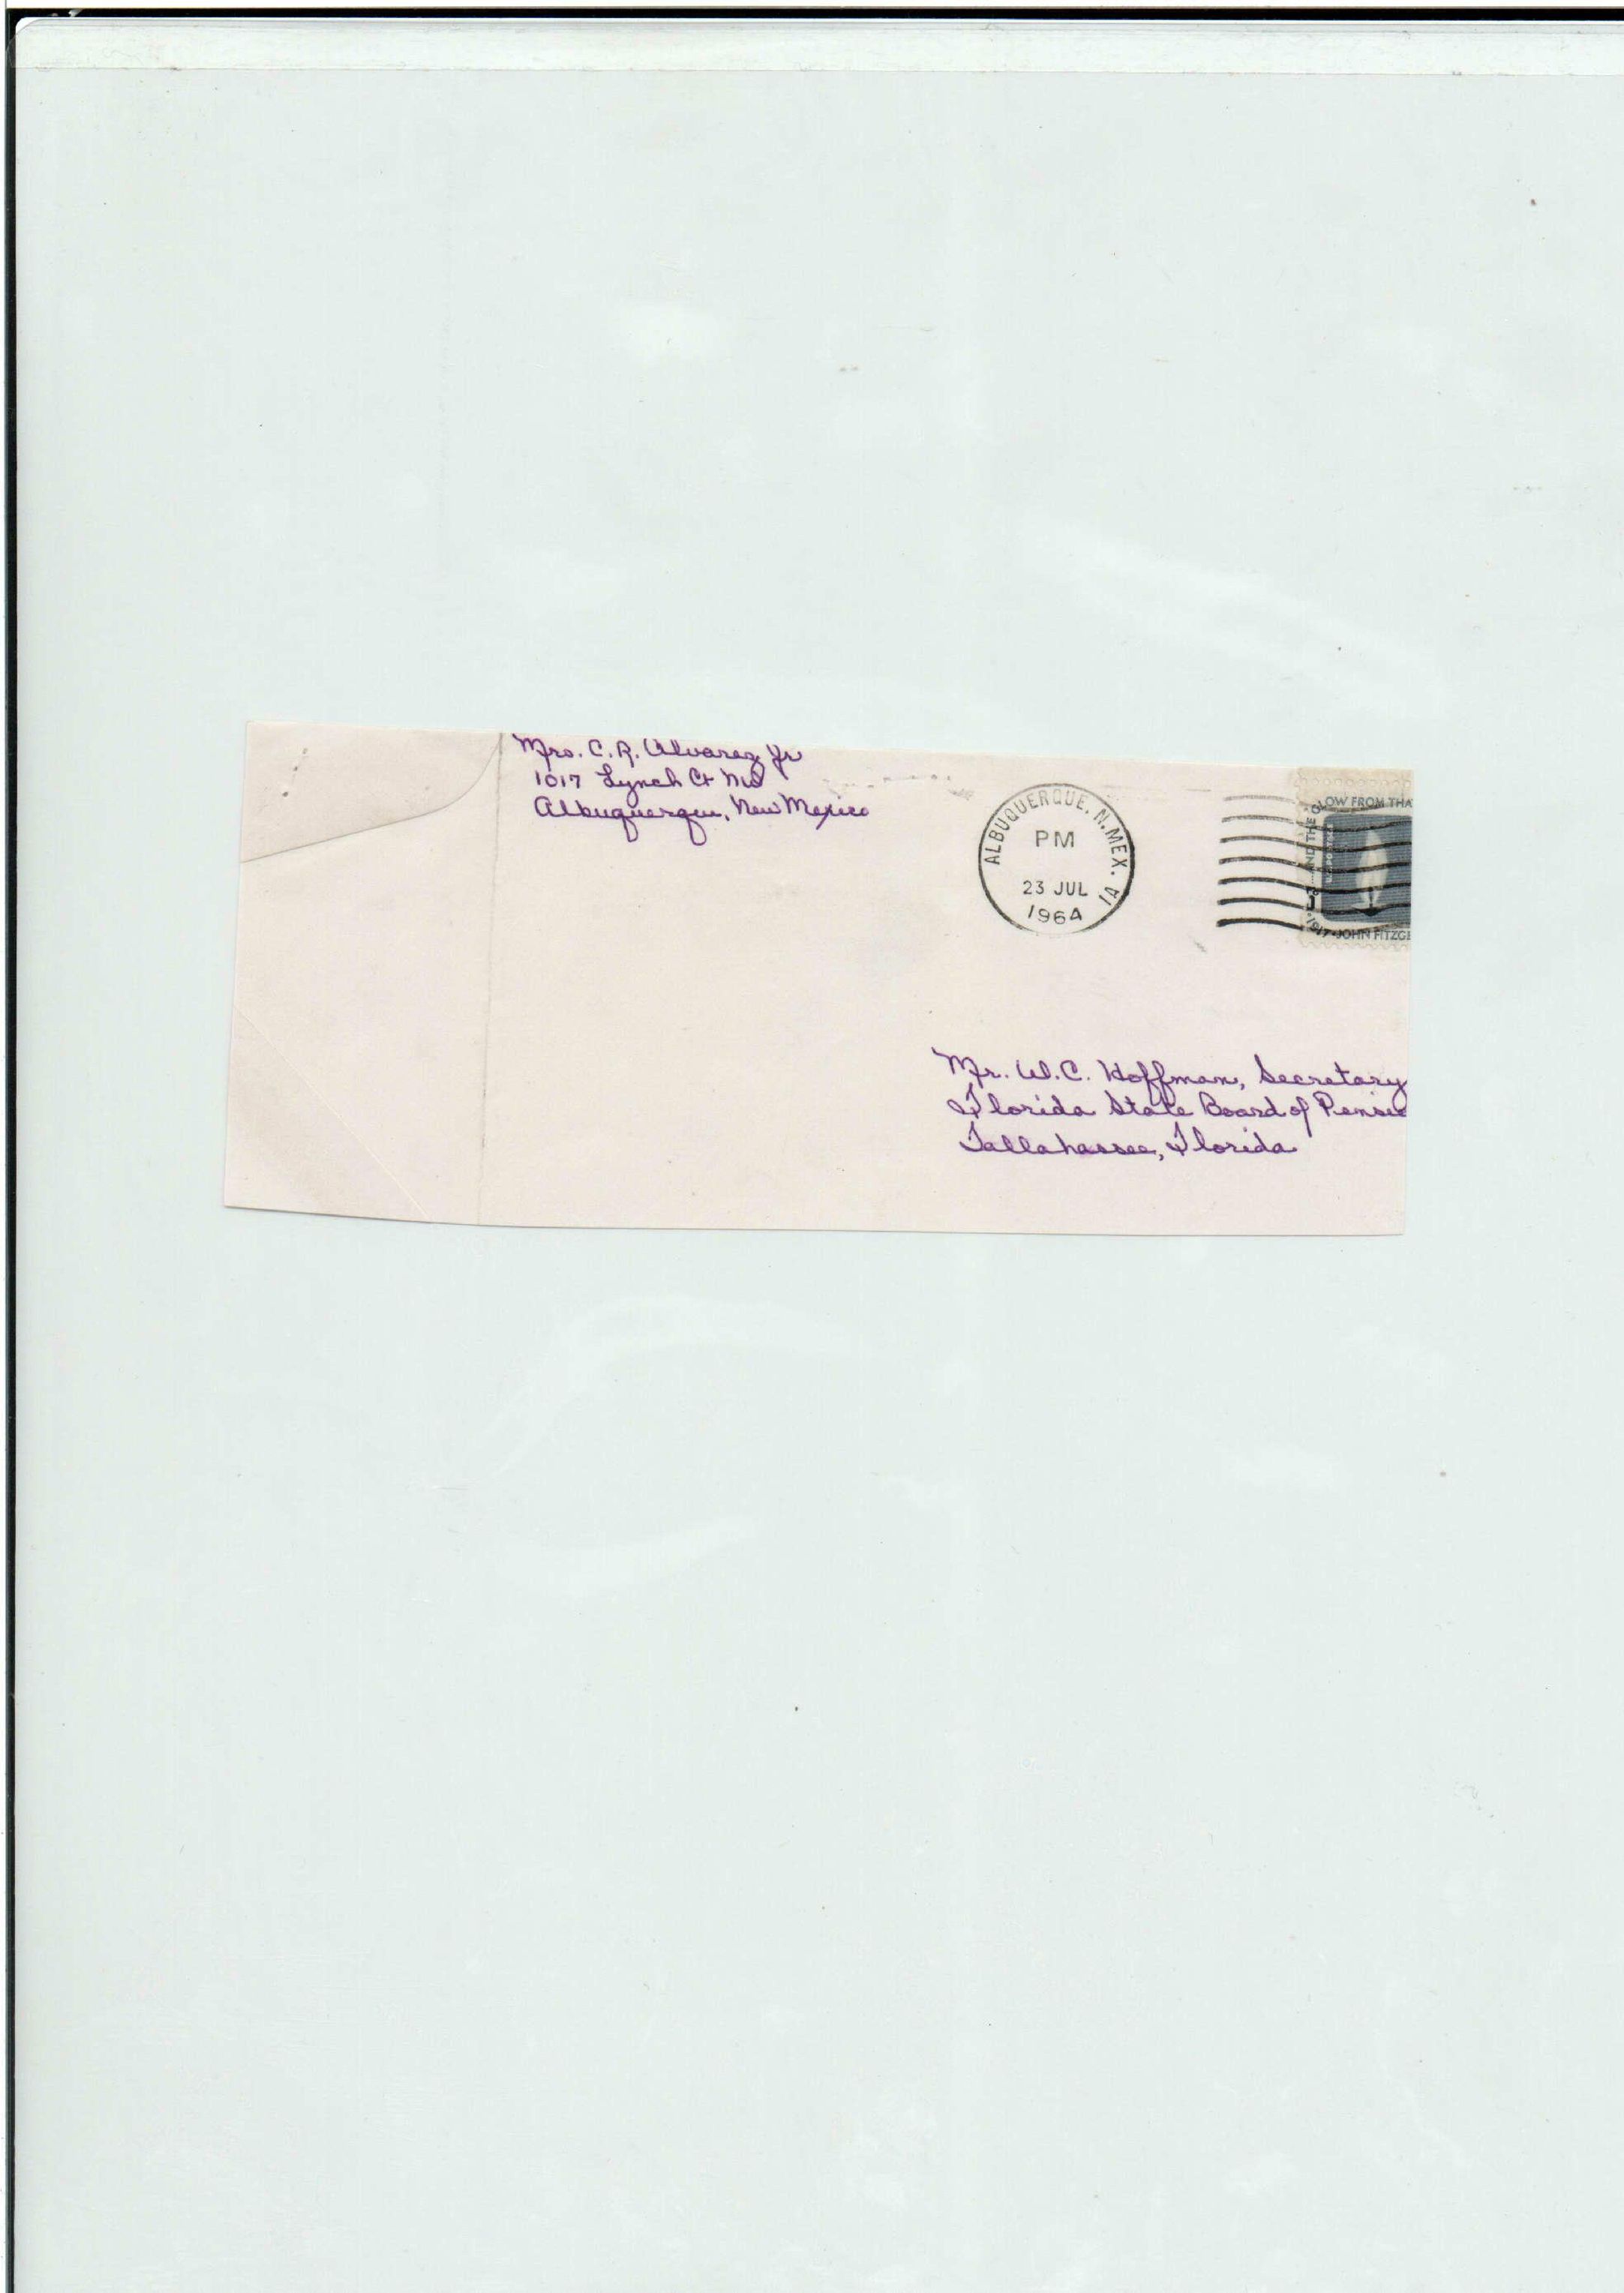 Mrs. C. R. Alvarez Jr
1017 Lynch Ct
Albuquerque, New Mexico
ALBUQUERQUE, N.MEX.
PM
23 JUL
1964
AND THE GLOW FROM THA
1917·JOHN FITZGE
Mr. W. C. Hoffman, Secretary
Florida State Board of Pensio
Tallahassee, Florida